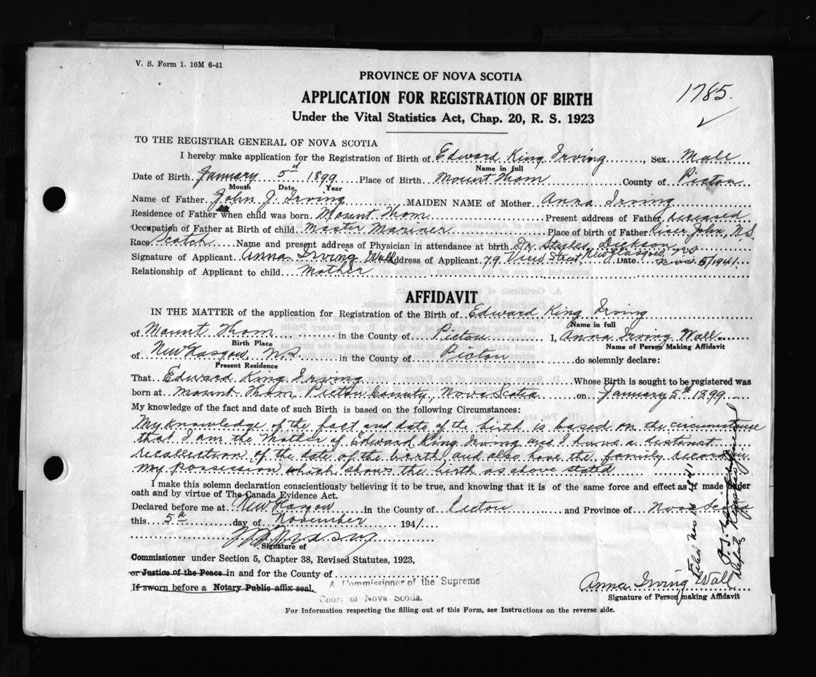 V. S. Form 1. 10M 6-41
PROVINCE OF NOVA SCOTIA
1785.
APPLICATION FOR REGISTRATION OF BIRTH
Under the Vital Statistics Act, Chap. 20, R. S. 1923
TO THE REGISTRAR GENERAL OF NOVA SCOTIA
I hereby make application for the Registration of Birth of Edward King Irving, Sex Male
Name in full
Date of Birth January 5th 1899 Place of Birth Mount Thom County of Pictou
Month Date Year
Name of Father John J. Irving MAIDEN NAME of Mother Anna Irving
Residence of Father when child was born Mount Thom Present address of Father deceased
Occupation of Father at Birth of child Master Mariner Place of birth of Father River John, N.S.
Race Scotch Name and present address of Physician in attendance at birth Dr. Dickson
Signature of Applicant Anna Irving Wall Address of Applicant 79 View Street New Glasgow, N.S. Date Nov. 5/1941
Relationship of Applicant to child Mother
AFFIDAVIT
IN THE MATTER of the application for Registration of the Birth of Edward King Irving
Name in full
of Mount Thom in the County of Pictou I, Anna Irving Wall
Birth Place Name of Person Making Affidavit
of New Glasgow N.S. in the County of Pictou do solemnly declare:
Present Residence
That Edward King Irving Whose Birth is sought to be registered was
born at Mount Thom Pictou County, Nova Scotia on January 5th 1899
My knowledge of the fact and date of such Birth is based on the following Circumstances:
My knowledge of the fact and date of the birth is based on the circumstance
that I am the Mother of Edward King Irving and I have a distinct
recollection of the date of the birth and also have the family record in
my possession which shows the birth as above stated
I make this solemn declaration conscientiously believing it to be true, and knowing that it is of the same force and effect as if made under
oath and by virtue of The Canada Evidence Act.
Declared before me at New Glasgow in the County of Pictou and Province of Nova Scotia
this 5th day of November 1941
Signature of
Commissioner under Section 5, Chapter 38, Revised Statutes, 1923,
or Justice of the Peace in and for the County of
A Commissioner of the Supreme
If sworn before a Notary Public affix seal.
Court of Nova Scotia.
Anna Irving Wall
Signature of Person making Affidavit
For Information respecting the filling out of this Form, see Instructions on the reverse side.
Filed Nov 14 1941
Deputy Registrar General